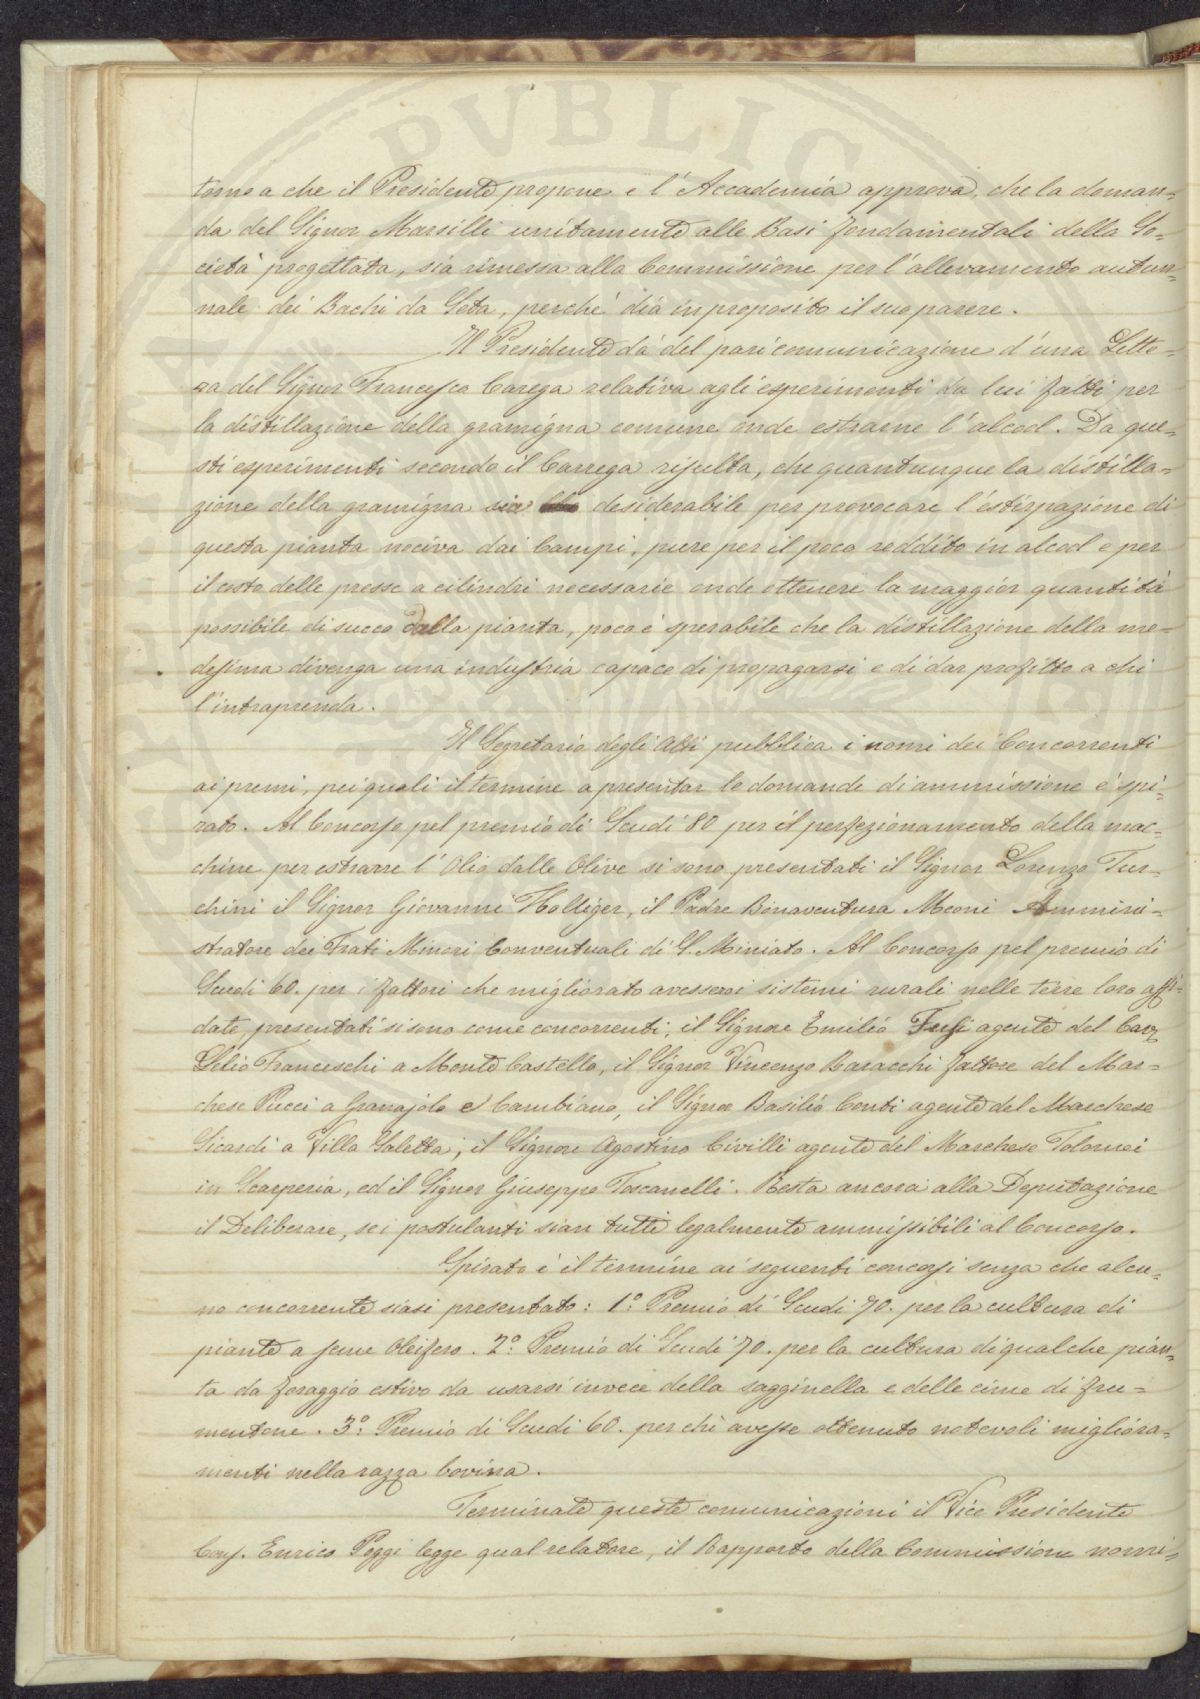 torno a che il Presidente propone e l'Accademia approva, che la doman=
da del Signor Marsilli unitamente alle Basi fondamentali della So=
cietà progettata, sia rimessa alla Commissione per l'allevamento autun=
nale dei Bachi da Seta, perché dia in proposito il suo parere.
Il Presidente dà del pari comunicazione d'una Lette=
ra del Signor Francesco Carega relativa agli esperimenti da lui fatti per
la distillazione della gramigna comune onde estrarne l'alcool. Da que=
sti esperimenti secondo il Carrega risulta, che quantunque la distilla=
zione della gramigna sia desiderabile per provocare l'estirpazione di
questa pianta nociva dai Campi, pure per il poco reddito in alcool e per
il costo delle presse a cilindri necessarie onde ottenere la maggior quantità
possibile di succo dalla pianta, poco è sperabile che la distillazione della me=
desima divenga una industria capace di propagarsi e di dar profitto a chi
l'intraprenda.
Il Segretario degli Atti pubblica i nomi dei Concorrenti
ai premi, pei quali il termine a presentar le domande di ammissione è spi=
rato. Al Concorso pel premio di Scudi 80 per il perfezionamento della mac=
chine per estrarre l'Olio dalle Olive si sono presentati il Signor Lorenzo Tur=
chini il Signor Giovanni Holliger, il Padre Bonaventura Meoni Ammini=
stratore dei Frati Minori Conventuali di S. Miniato. Al Concorso pel premio di
Scudi 60. per i fattori che migliorato avessero i sistemi rurali nelle terre loro affi=
date, presentati si sono come concorrenti; il Signore Emilio Fusi agente del Cav.
Lelio Franceschi a Monte Castello, il Signor Vincenzo Baracchi fattore del Mar=
chese Pucci a Granajolo e Cambiano, il Signor Basilio Conti agente del Marchese
Sicardi a Villa Saletta, il Signore Agostino Civilli agente del Marchese Tolomei
in Scarperia, ed il Signor Giuseppe Toscanelli. Resta ancora alla Deputazione
il Deliberare, se i postulanti sian tutti legalmente ammissibili al Concorso.
Spirato è il termine ai seguenti concorsi senza che alcu=
no concorrente siasi presentato: 1º Premio di Scudi 70. per la cultura di
piante a seme Oleifero. 2º: Premio di Scudi 70. per la cultura di qualche pian=
ta da foraggio estivo da usarsi invece della sagginella e delle cime di fru=
mentone. 3º: Premio di Scudi 60. per chi avesse ottenuto notevoli migliora=
menti nella razza bovina.
Terminate queste comunicazioni il Vice Presidente
Cons. Enrico Poggi legge qual relatore, il Rapporto della Commissione nomi=